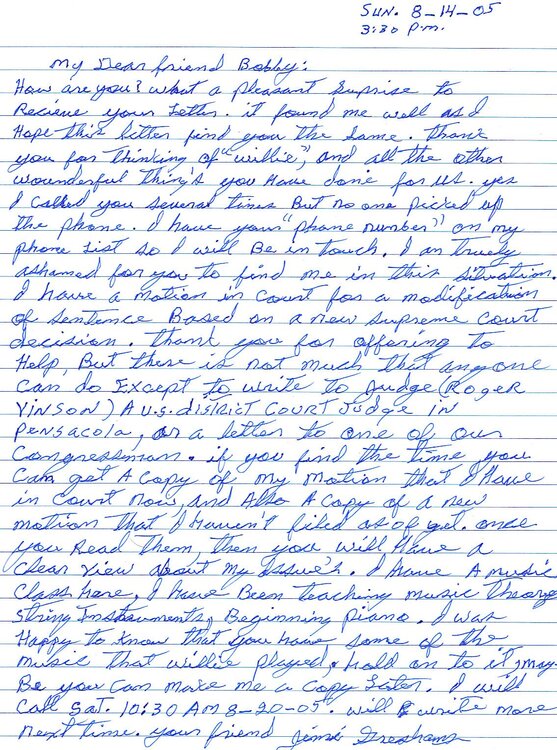 SUN. 8-14-05
3:30 P.m.
My Dear friend Bobby:
How are you? what a pleasant Surprise to
Recieve your Letter. it found me well as I
Hope this letter find you the Same. Thank
you for thinking of "willie", and all the other
wounderful thing's you Have done for us. yes
I called you several times But no one picked up
the phone. I have your "phone number" on my
phone List so I will Be in touch. I am truely
ashamed for you to find me in this situation.
I have a motion in Court for a modification
of sentence Based on a new supreme Court
decision. Thank you for offering to
Help, But there is not much that anyone
Can do Except to write to Judge (ROGER
VINSON) A U.S. district COURT Judge in
Pensacola, or a letter to one of our
Congressman. if you find the time, you
Can get A Copy of my motion that I Have
in Court Now, and Also A Copy of a new
motion that I Haven't filed as of yet. once
you Read them, then you will Have a
Clear view about my Issue's. I have A music
Class here, I have Been teaching music theory
String Instruments, Beginning piano. I was
Happy to know that you have some of the
music that willie played, hold on to it, may
Be you Can make me a Copy Later. I will
Call Sat. 10:30 AM 8-20-05. will write more
next time. your friend